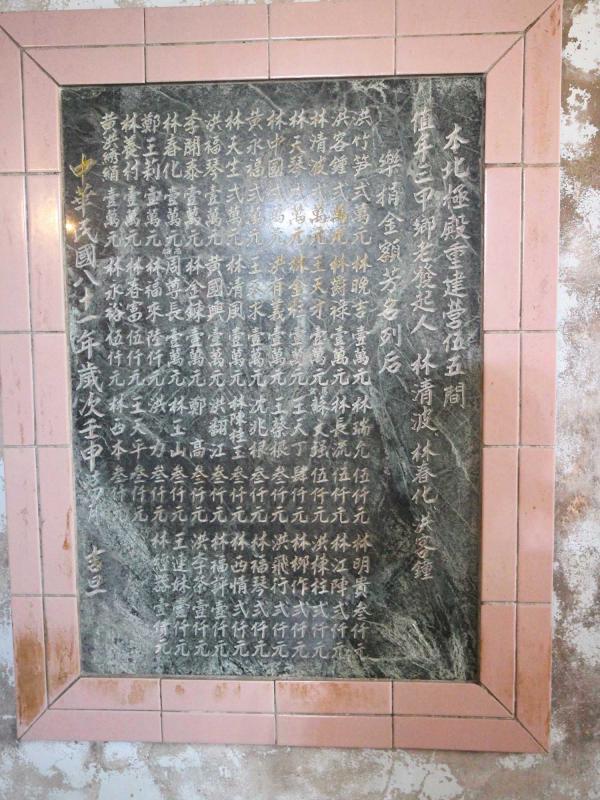 本北極殿重建營伍五間
值年三甲鄉老發起人 林清波 林春化 洪客鐘
樂捐金額芳名列后
洪竹笋 弍萬元 林晚吉 壹萬元 林瑞允 伍仟元 林明貴 叁仟元
洪客鐘 弍萬元 林蔚祿 壹萬元 林長流 伍仟元 林江陣 弍仟元
林清波 弍萬元 王天才 壹萬元 蘇文强 伍仟元 洪棟柱 弍仟元
林天琴 弍萬元 林金柱 壹萬元 王天丁 肆仟元 林柳作 弍仟元
林中國 弍萬元 洪有義 壹萬元 王蔡根 叁仟元 洪飛行 弍仟元
黃永福 弍萬元 王登求 壹萬元 沈兆根 叁仟元 林福琴 弍仟元
林天生 弍萬元 林清風 壹萬元 林陳桂玉 叁仟元 林西情 弍仟元
洪福琴 壹萬元 黃國興 壹萬元 洪翻江 叁仟元 林福 壹仟元
李開泰 壹萬元 林金錸 壹萬元 鄭高 叁仟元 洪字茶 壹仟元
林春化 壹萬元 周尊長 壹萬元 林玉山 叁仟元 王連林 壹仟元
鄭王莉 壹萬元 林福來 陸仟元 洪力 叁仟元 林經 壹仟元
林養村 壹萬元 林春富 伍仟元 王天年 叁仟元
黃洪綉緞 壹萬元 林永裕 伍仟元 林西本 叁仟
中華民國八十一年歲次壬申 吉旦